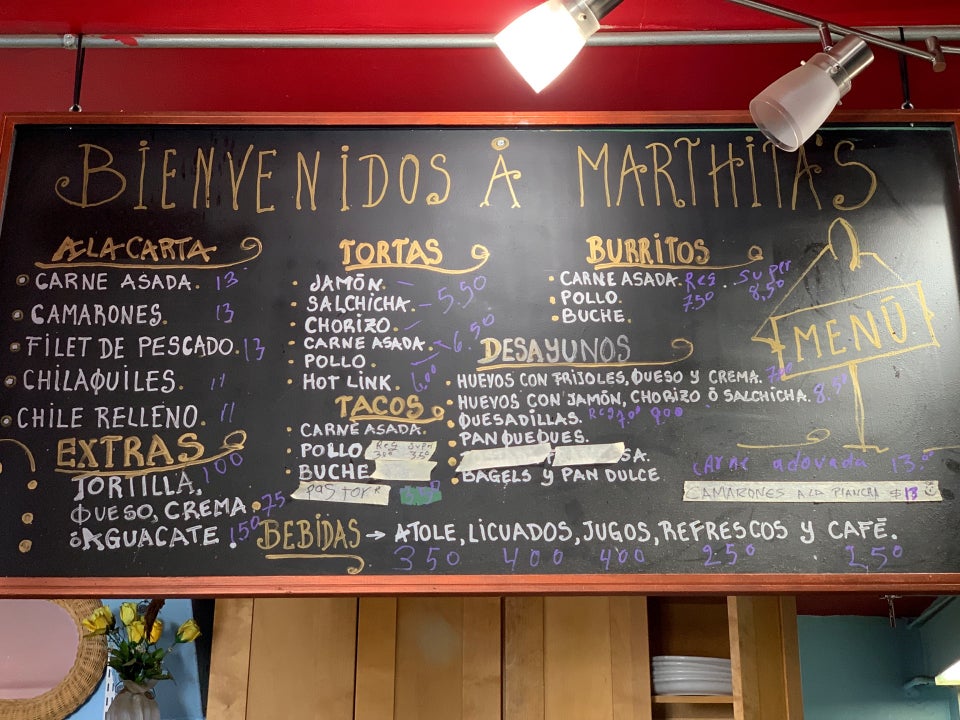 BIENVENIDOS A MARTHITA'S
A LA CARTA
CARNE ASADA. 13
CAMARONES. 13
FILET DE PESCADO. 13
CHILAQUILES. 11
CHILE RELLENO. 11
EXTRAS
TORTILLA, 1.00
QUESO, CREMA .75
ó AGUACATE. 150
TORTAS
JAMÓN.
SALCHICHA. 5.50
CHORIZO.
CARNE ASADA. 6.50
POLLO.
HOT LINK. 6.00
TACOS
CARNE ASADA.
POLLO Reg Super
BUCHE 3.50
PASTOR
BURRITOS
CARNE ASADA. Reg. Super
POLLO. 750 8.50
BUCHE.
DESAYUNOS
HUEVOS CON FRIJOLES, QUESO Y CREMA.
HUEVOS CON JAMÓN, CHORIZO Ó SALCHICHA. 8.50
QUESADILLAS. Reg
PANQUEQUES.
SA.
BAGELS Y PAN DULCE
MENÚ
CArne adovada 13.00
CAMARONES A LA PLANCHA $13
BEBIDAS → ATOLE, LICUADOS, JUGOS, REFRESCOS Y CAFÉ.
350 400 400 250 250